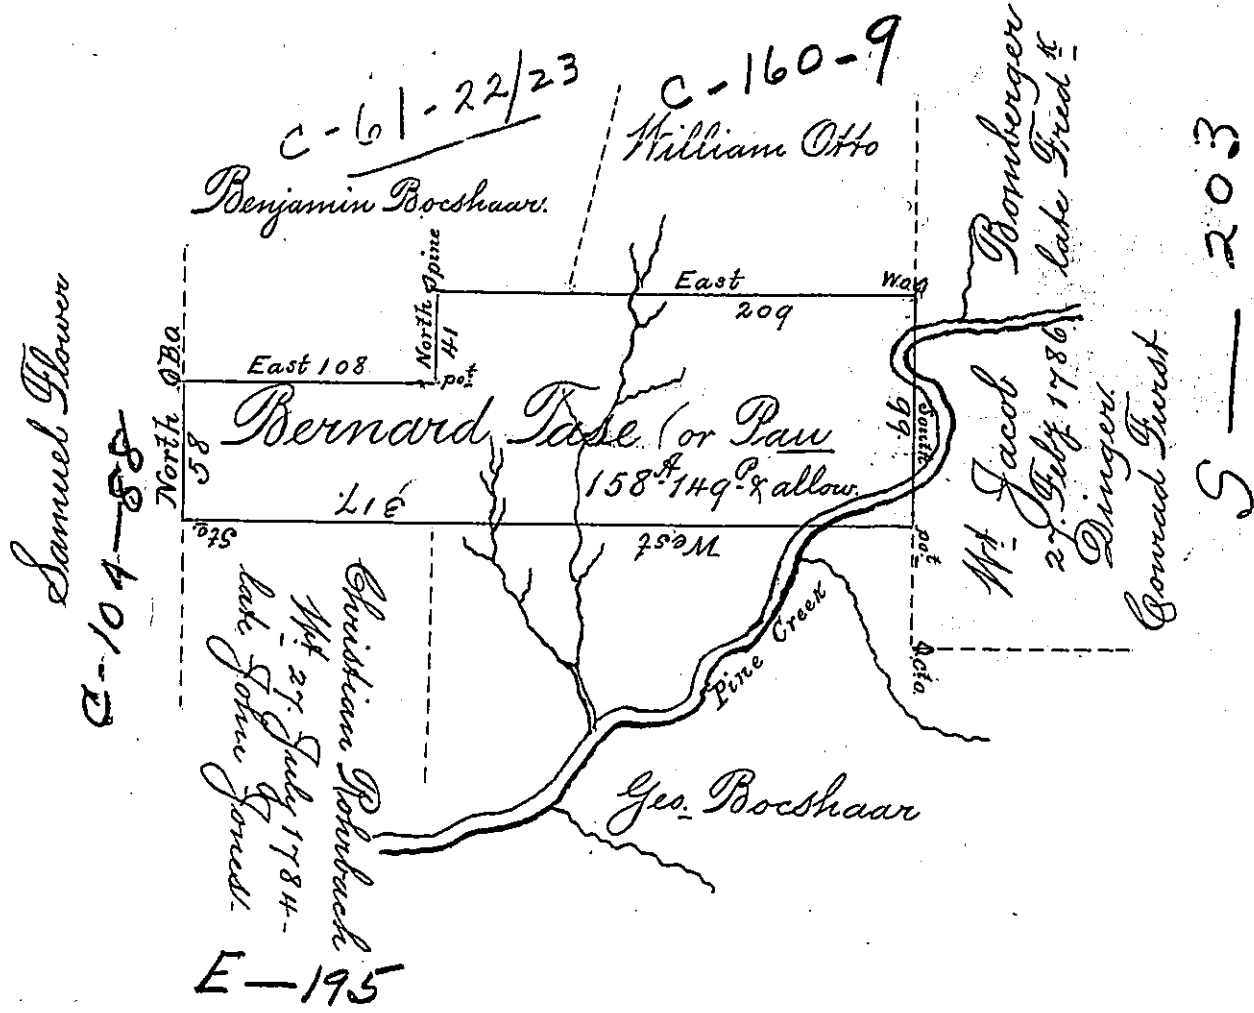 C-61-22/23
C-160-9
Benjamin Bocshaar.
William Otto
Samuel Flower
C-104-58
B.O.
North
58
East 108
North
41
Spine
pot
East
209
W.Oa
South
99.
Bernard Tase (or Pau
158A 149P & allow.
317.
West
Sto.
pot
Pine Creek
Geo. Bocshaar
Christian Rohrbach
Wt. 27. July 1784-
late John Jones.
E-195
Wt Jacob Bomberger
27. Feby 1786 late Fredk
Dinger.
Conrad Furst
S-203